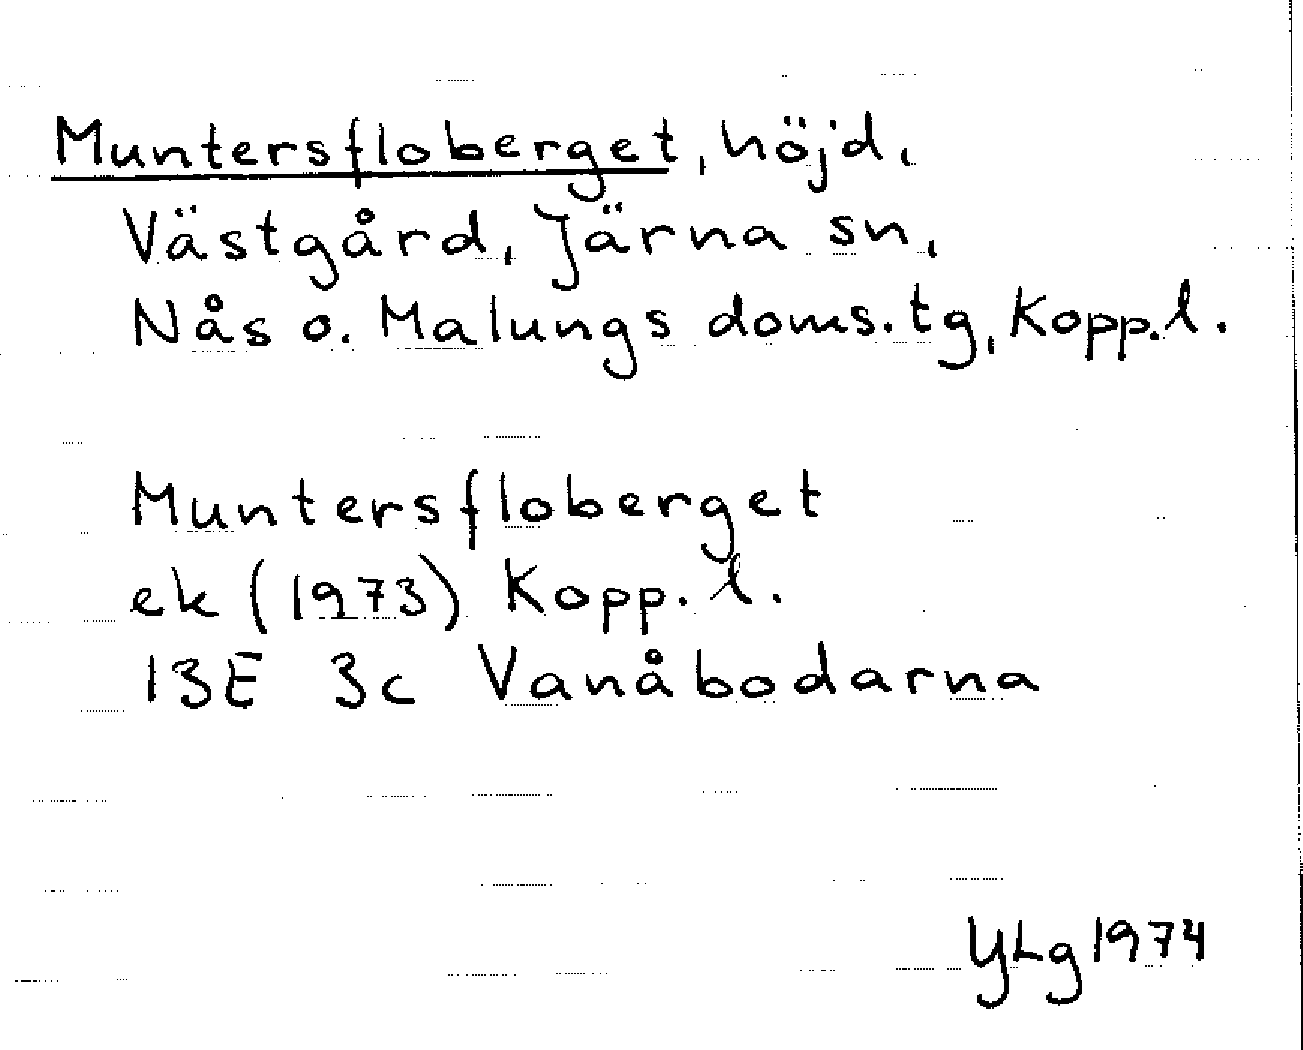 Muntersfloberget, höjd,
Västgård, Järna sn,
Nås o. Malungs doms.tg, Kopp.l.
Muntersfloberget
ek (1973) Kopp. l.
13E 3c Vanåbodarna
YLg 1974